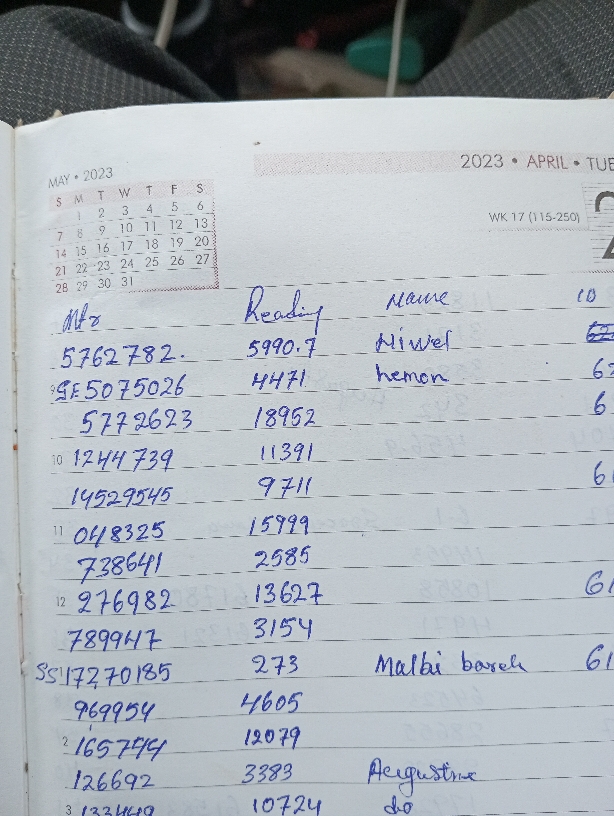 MAY • 2023
2023 • APRIL • TUE
S M T W T F S
1 2 3 4 5 6
7 8 9 10 11 12 13
14 15 16 17 18 19 20
21 22 23 24 25 26 27
28 29 30 31
WK 17 (115-250)
Mtr Reading Name ID
5762782. 5990.7
9 SE5075026 4471 hemon
5772623 18952
10 1244739 11391
14529545 9711
11 048325 15999
738641 2585
12 276982 13627
789947 3154
273 Malbi
969954 4605
2 12079
126692 3383
3 10724 do